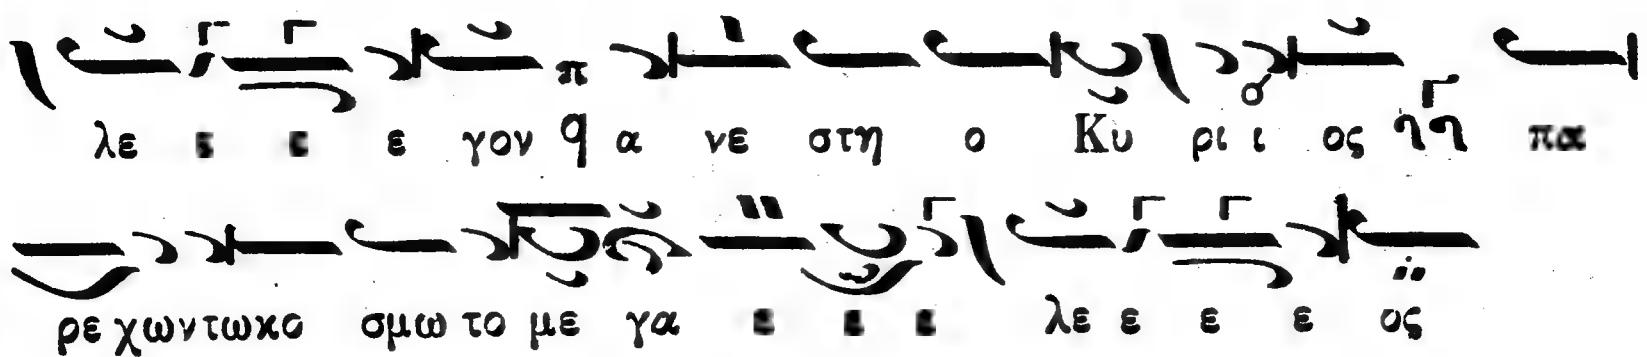 λε ε ε ε γον π̣ ϥ α νε στη ο Κυ ρι ι ος ηη πα
ρε χων τω κο σμω το με γα ε ε ε λε ε ε ε ος